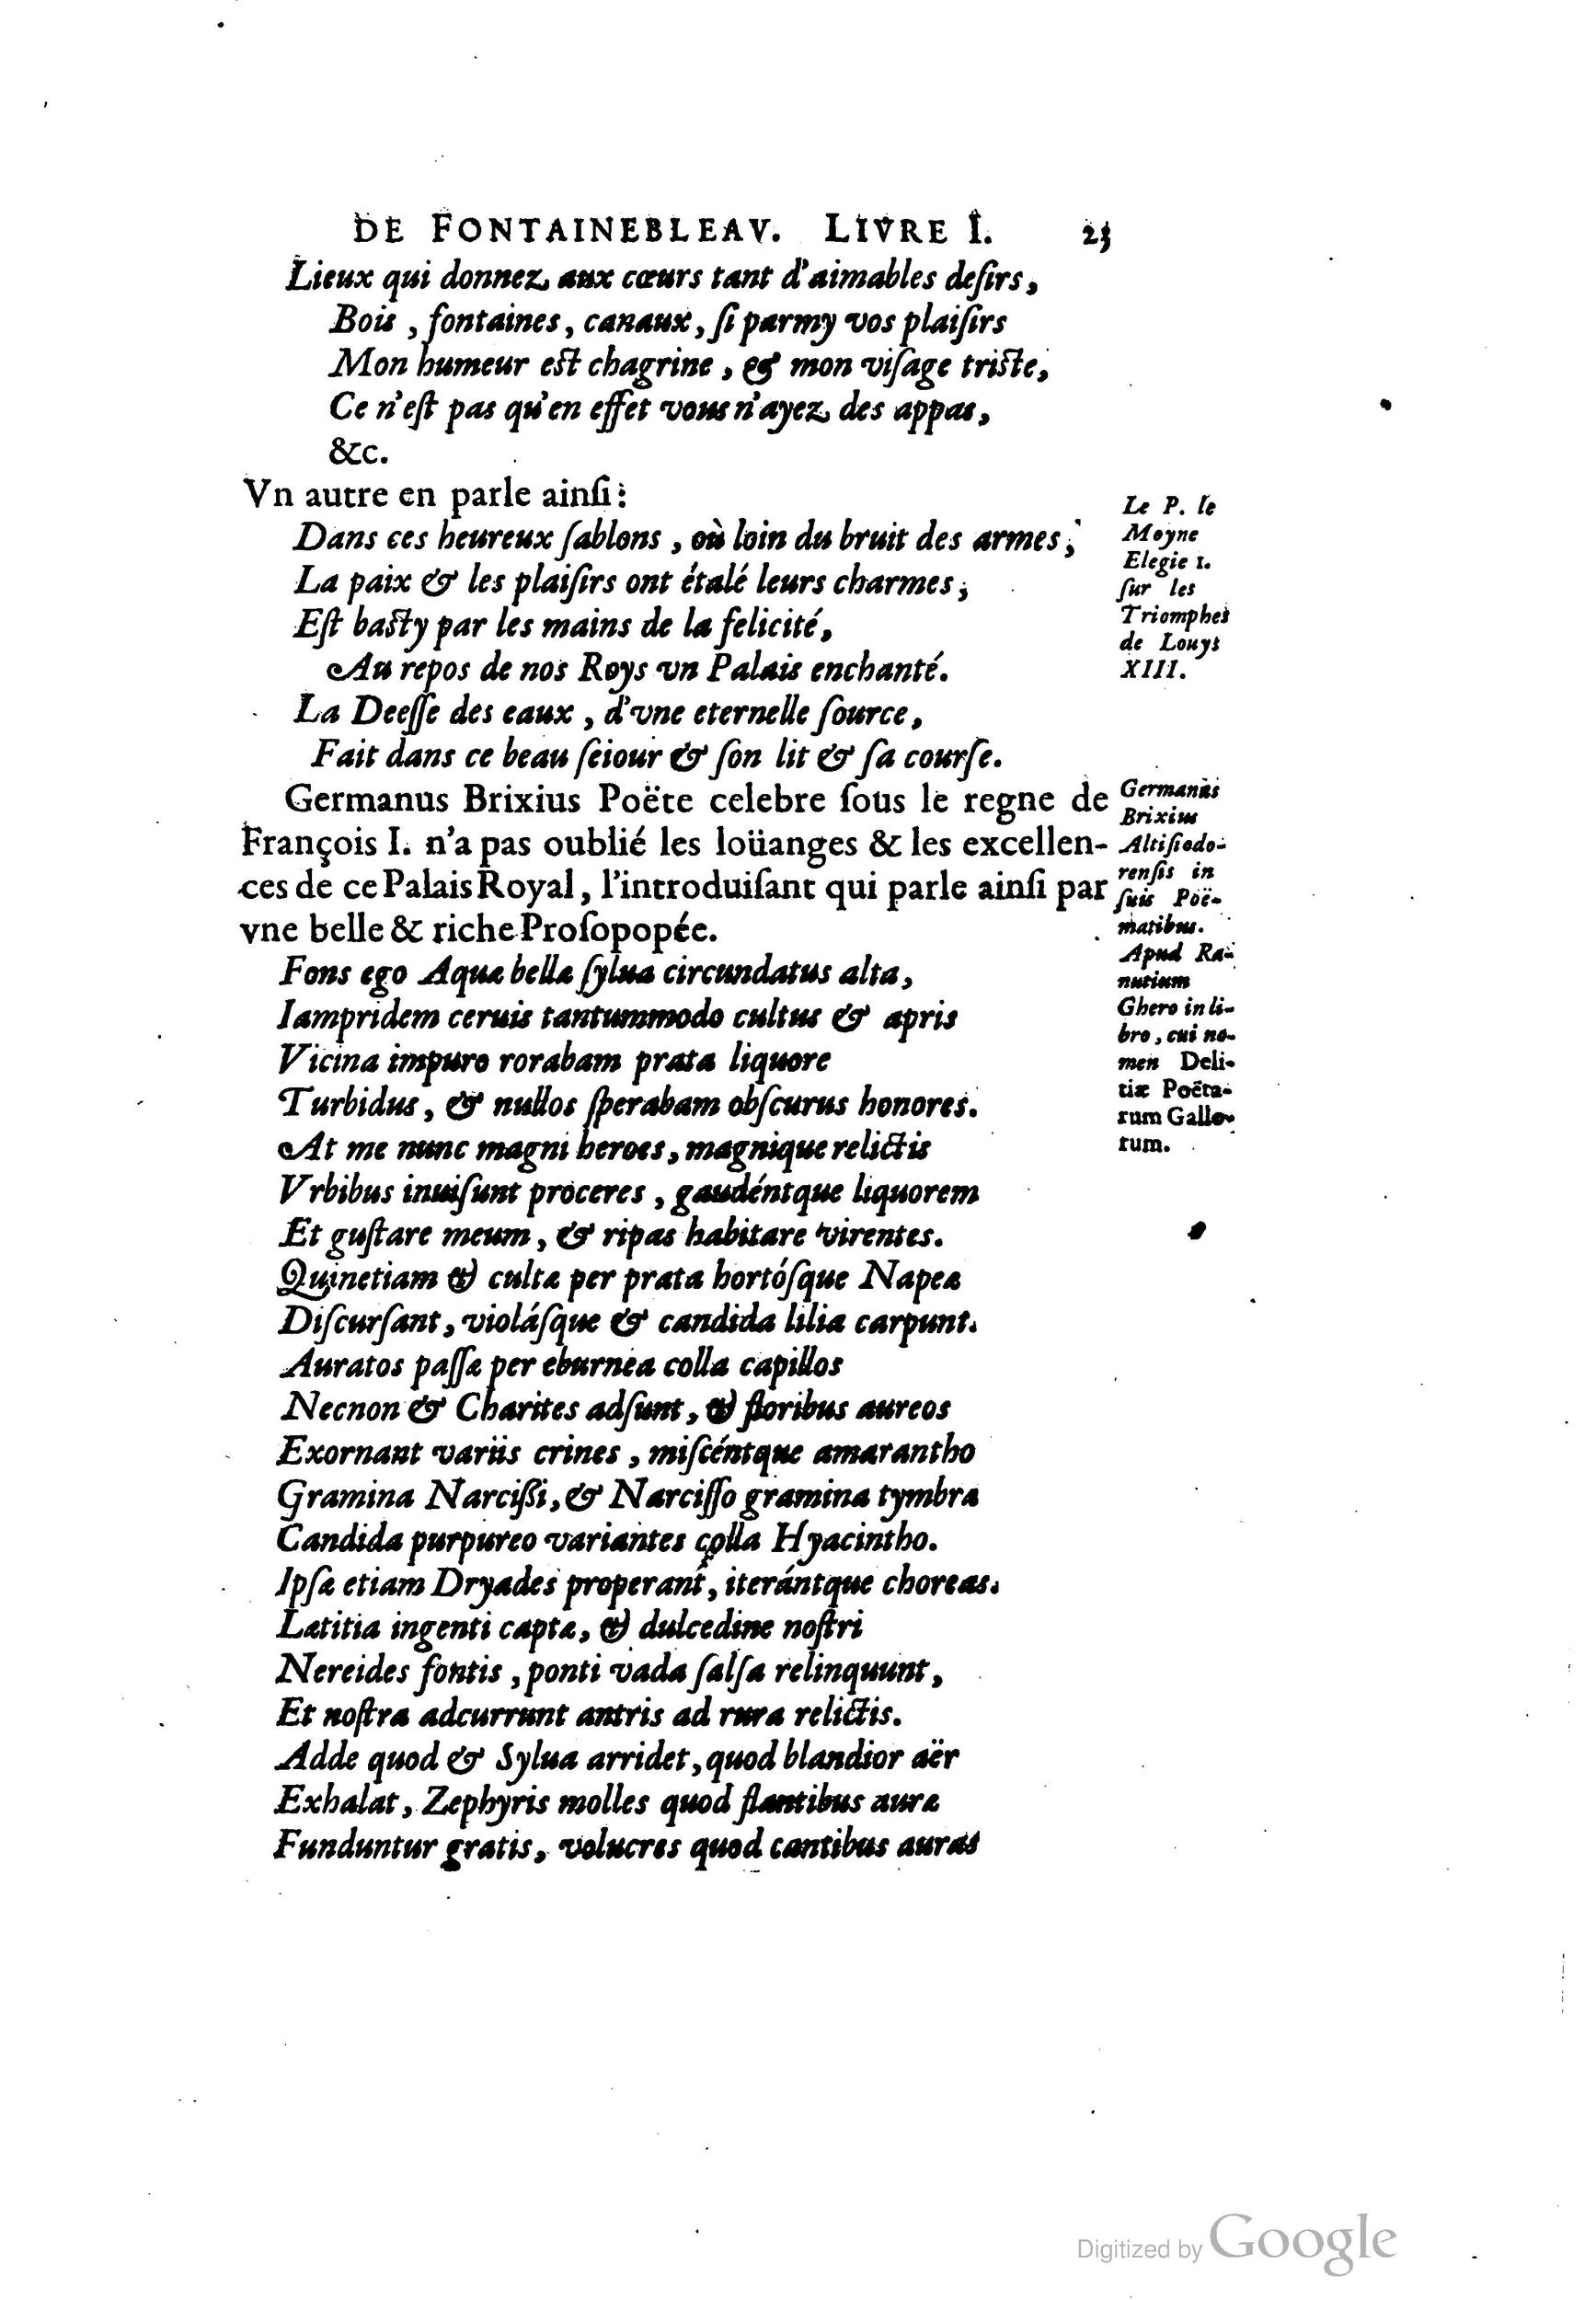 DE FONTAINEBLEAV. LIVRE I. 23
Lieux qui donnez aux cœurs tant d'aimables deſirs,
Bois, fontaines, canaux, ſi parmy vos plaiſirs
Mon humeur eſt chagrine, & mon viſage triſte,
Ce n'eſt pas qu'en effet vous n'ayez des appas,
&c.
Vn autre en parle ainſi:
Dans ces heureux ſablons, où loin du bruit des armes,
La paix & les plaiſirs ont étalé leurs charmes,
Eſt baſty par les mains de la felicité,
Au repos de nos Roys vn Palais enchanté.
La Deeſſe des eaux, d'vne eternelle ſource,
Fait dans ce beau ſeiour & ſon lit & ſa courſe.
Le P. le
Moyne
Elegie 1.
ſur les
Triomphes
de Louys
XIII.
Germanus Brixius Poëte celebre ſous le regne de
François I. n'a pas oublié les loüanges & les excellen-
ces de ce Palais Royal, l'introduiſant qui parle ainſi par
vne belle & riche Proſopopée.
Germanus
Brixius
Altiſiodo-
renſis in
ſuis Poë-
matibus.
Apud Ra-
nutium
Ghero in li-
bro, cui no-
men Deli-
tiæ Poëta-
rum Gallo-
rum.
Fons ego Aquæ bellæ ſylua circundatus alta,
Iampridem ceruis tantummodo cultus & apris
Vicina impuro rorabam prata liquore
Turbidus, & nullos ſperabam obſcurus honores.
At me nunc magni heroes, magnique relictis
Vrbibus inuiſunt proceres, gaudéntque liquorem
Et guſtare meum, & ripas habitare virentes.
Quinetiam & cultæ per prata hortóſque Napeæ
Diſcurſant, violáſque & candida lilia carpunt.
Auratos paſſæ per eburnea colla capillos
Necnon & Charites adſunt, & floribus aureos
Exornant variis crines, miſcéntque amarantho
Gramina Narciſſi, & Narciſſo gramina tymbræ
Candida purpureo variantes colla Hyacintho.
Ipſæ etiam Dryades properant, iterántque choreas.
Lætitia ingenti captæ, & dulcedine noſtri
Nereides fontis, ponti vada ſalſa relinquunt,
Et noſtra adcurrunt antris ad rura relictis.
Adde quod & Sylua arridet, quod blandior aër
Exhalat, Zephyris molles quod flantibus auræ
Funduntur gratis, volucres quod cantibus auras
Digitized by Google